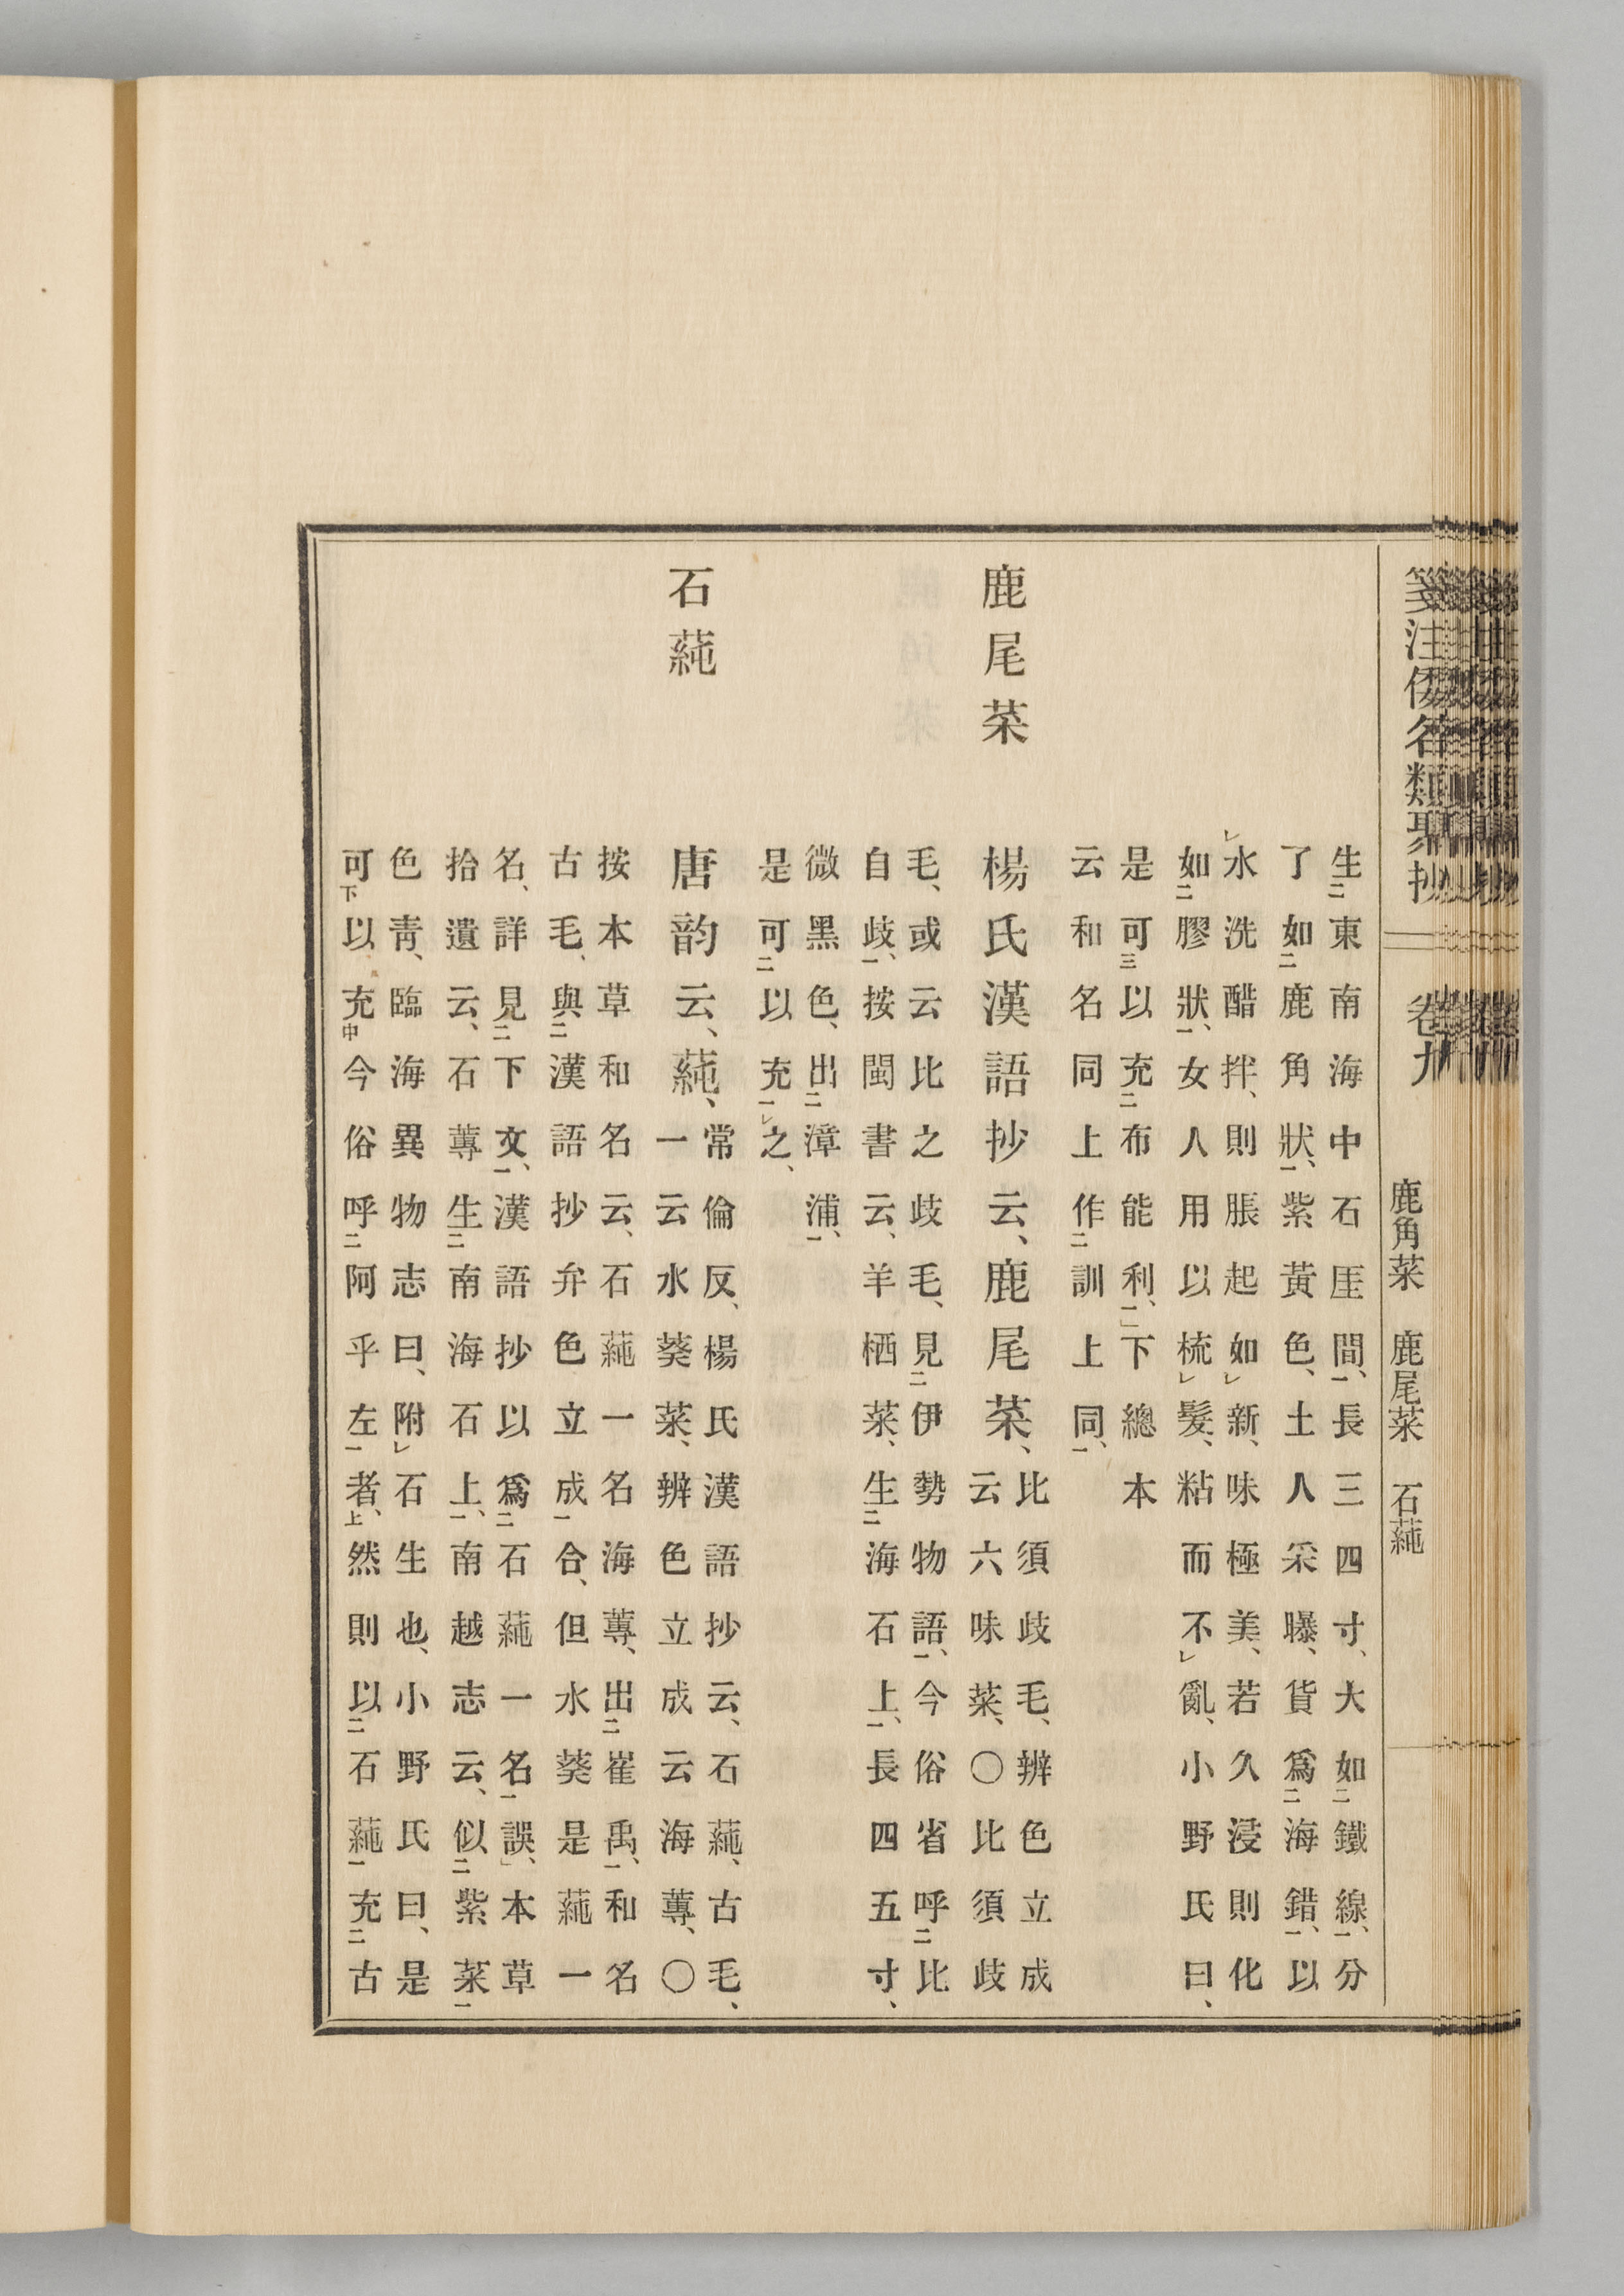 箋注倭名類聚抄 卷九 鹿角菜 鹿尾菜 石蒓
生㆓東南海中石厓間㆒、長三四寸、大如㆓鐵線㆒、分
了如㆓鹿角狀㆒、紫黃色、土人采曝、貨爲㆓海錯㆒、以
㆑水洗醋拌、則脹起如㆑新、味極美、若久浸則化
如㆓膠狀㆒、女人用以梳㆑髮、粘而不㆑亂、小野氏曰、
是可㆔以充㆓布能利㆒、」下總本
云和名同上作㆓訓上同㆒、
鹿尾菜 楊氏漢語抄云、鹿尾菜、
比須歧毛、辨色立成
云六味菜、○比須歧
毛、或云比之歧毛、見㆓伊勢物語㆒、今俗省呼㆓比
自歧㆒、按閩書云、羊栖菜、生㆓海石上㆒、長四五寸、
微黑色、出㆓漳浦㆒、
是可㆓以充㆒㆑之、
石蒓 唐韵云、蒓、
常倫反、楊氏漢語抄云、石蒓、古毛、
一云水葵菜、辨色立成云海蓴、○
按本草和名云、石蒓一名海蓴、出㆓崔禹㆒、和名
古毛、與㆓漢語抄弁色立成㆒合、但水葵是蒓一
名、詳見㆓下文㆒、漢語抄以爲㆓石蒓一名㆒誤、」本草
拾遺云、石蓴生㆓南海石上㆒、南越志云、似㆓紫菜㆒
色靑、臨海異物志曰、附㆑石生也、小野氏曰、是
可㆘以充㆗今俗呼㆓阿乎左㆒者㆖、然則以㆓石蒓㆒充㆓古